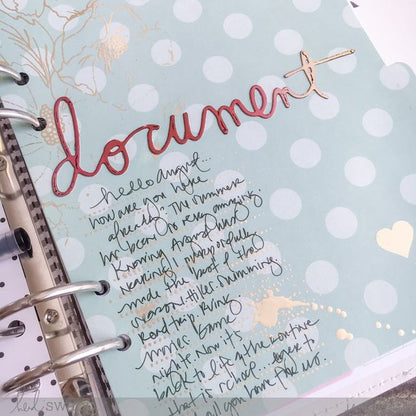 document
hello august...
how are you here
already. The summers
been so very amazing.
Knowing August was
nearing I purposefully
made the best of that
season. Hikes. swimming
road trip. Bing
movies. Game
nights. Now it's
back to life & the routine
that is school...
all you have for us...